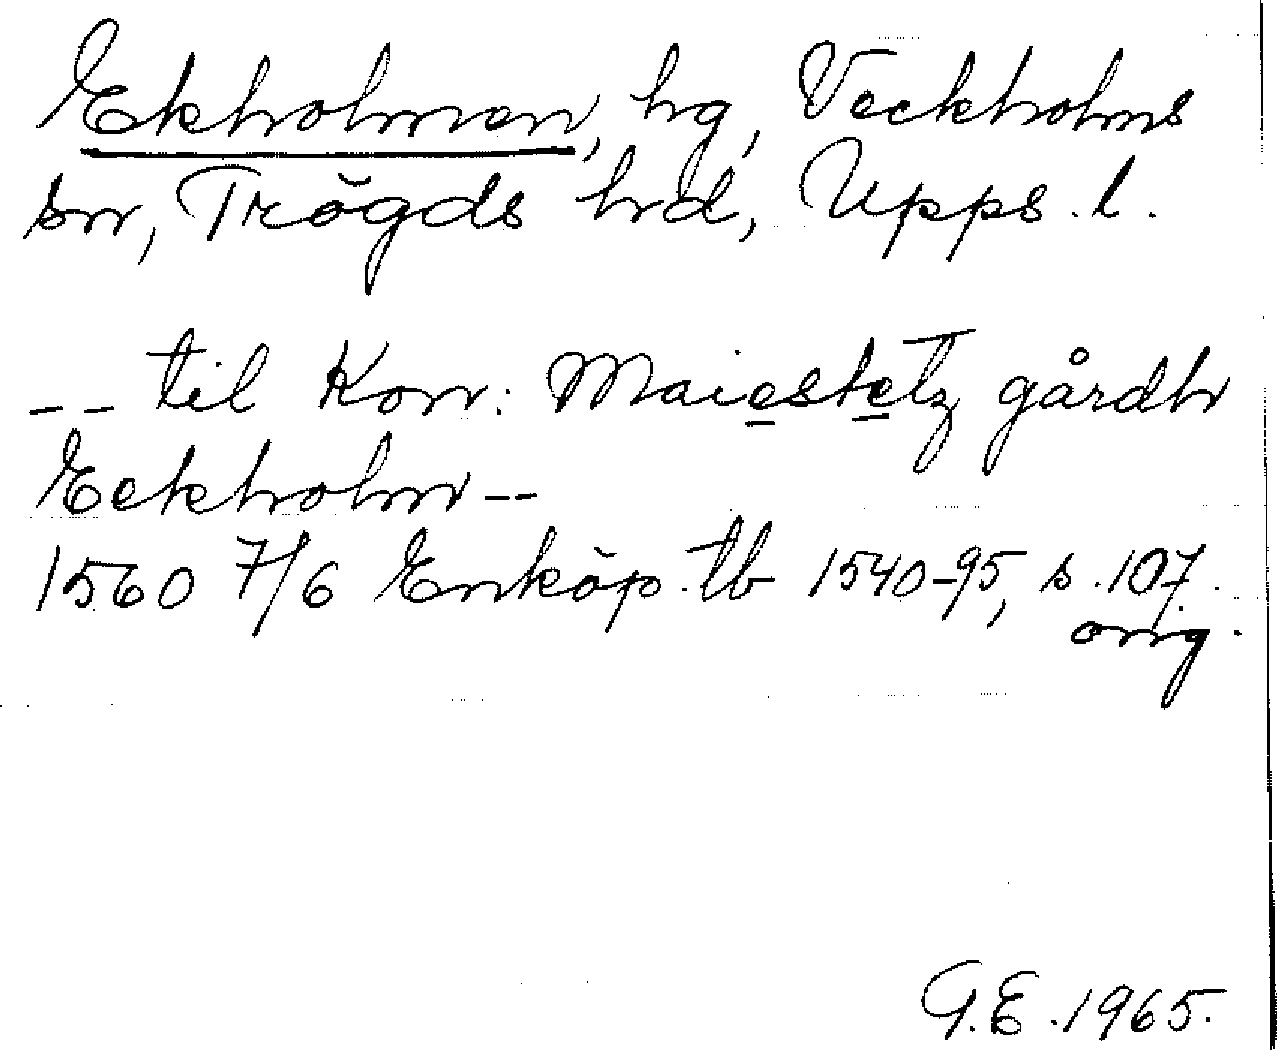 Ekholmen, hg, Veckholms
sn, Trögds hd, Upps. l.
-- til Kon: Maiestetz gårdh
Eckholm --
1560 7/6 Enköp. tb 1540-95, s. 107.
orig.
G.E. 1965.